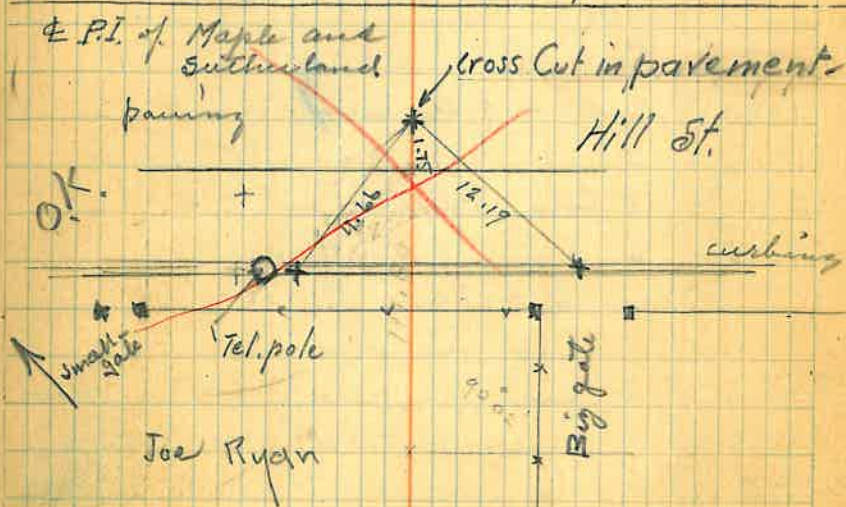 ℄ P.I. of Maple and
Sutherland
Cross Cut in pavement
paving
Hill St.
O.K.
1.75
12.19
curbing
small
gate
Tel. pole
Big gate
90°
Joe Ryan